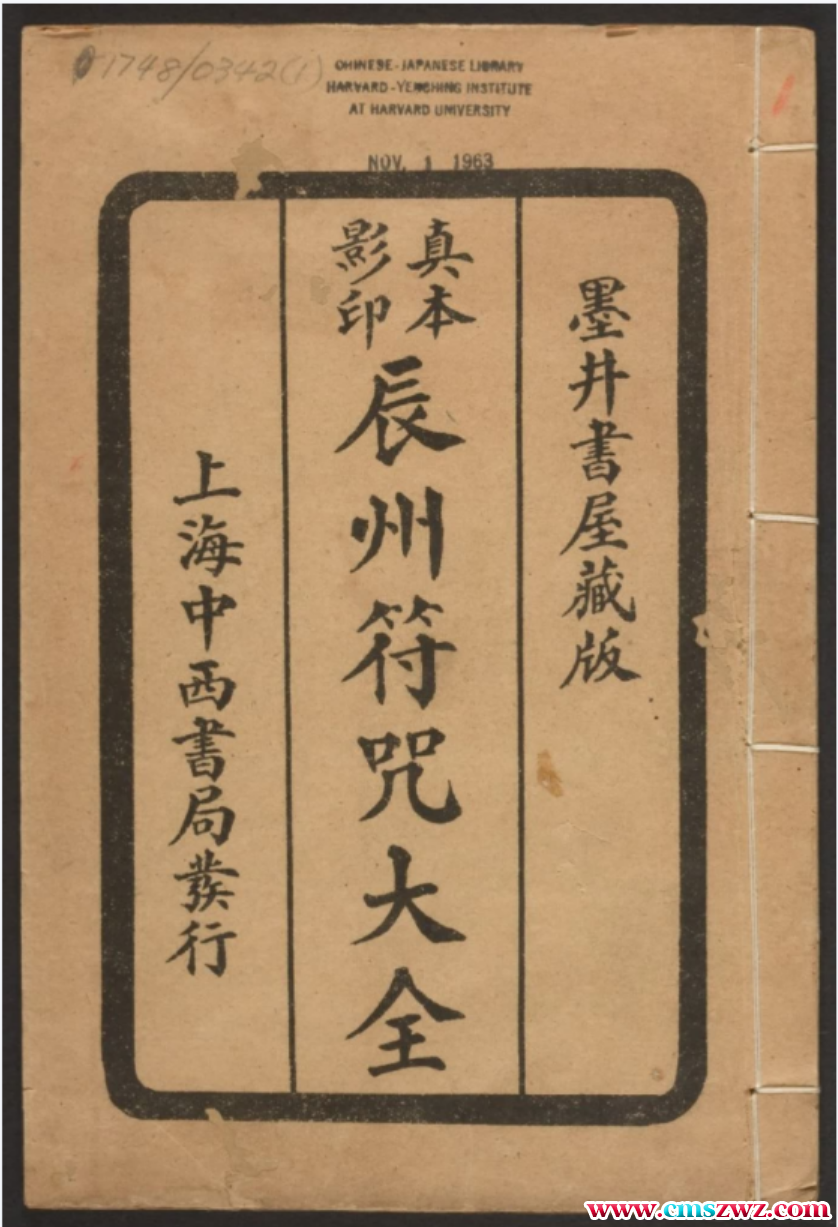 1748/0342(1)
CHINESE-JAPANESE LIBRARY
HARVARD-YENCHING INSTITUTE
AT HARVARD UNIVERSITY
NOV. 1 1963
墨井書屋藏版
真本
影印
辰州符咒大全
上海中西書局發行
www.cmszwz.com